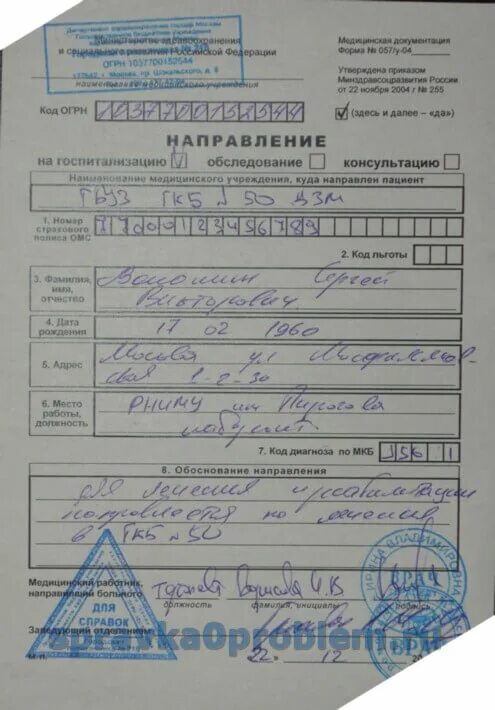 Департамент здравоохранения города Москвы
Министерство здравоохранения
и социального развития Российской Федерации
ОГРН 1037700152544
наименование медицинского учреждения
Медицинская документация
Форма № 057/у-04
Утверждена приказом
Минздравсоцразвития России
от 22 ноября 2004 г № 255
Код ОГРН 1037700152544
(здесь и далее – «да»)
НАПРАВЛЕНИЕ
на госпитализацию V обследование консультацию
Наименование медицинского учреждения, куда направлен пациент
ГБУЗ ГКБ № 50 ДЗМ
1. Номер
страхового
полиса ОМС
770001 23456789
2. Код льготы
3. Фамилия,
имя,
отчество
Сергей
Викторович
4. Дата
рождения
17 02 1960
5. Адрес
Москва ул
1-2-30
6. Место
работы,
должность
РНИМУ им Пирогова
7. Код диагноза по МКБ
8. Обоснование направления
для лечения и реабилитации
направляется на лечение
в ГКБ № 50
Медицинский работник,
направивший больного
должность фамилия, инициалы подпись
Заведующий отделением
22 12 20
М.П.
ДЛЯ
СПРАВОК
ИРИНА ВЛАДИМИРОВНА
ВРАЧ
ВРАЧ